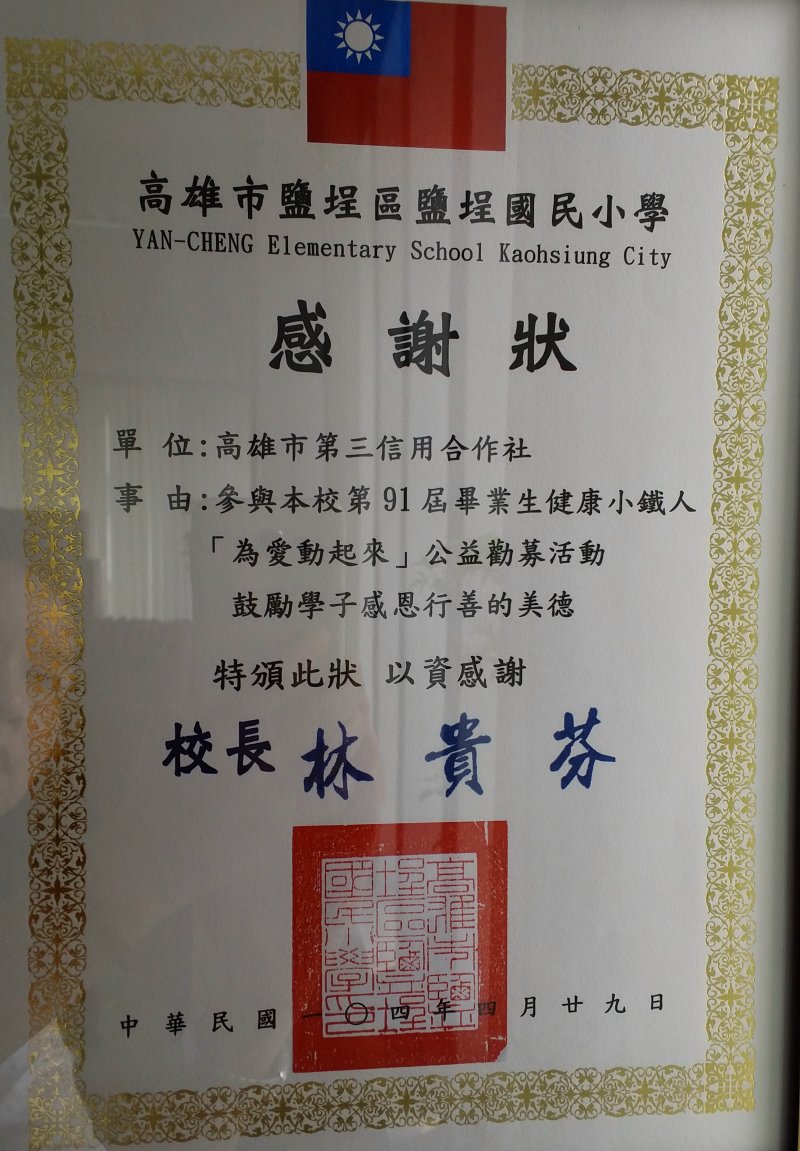 高雄市鹽埕區鹽埕國民小學
YAN-CHENG Elementary School Kaohsiung City
感謝狀
單 位:高雄市第三信用合作社
事 由:參與本校第91屆畢業生健康小鐵人
「為愛動起來」公益勸募活動
鼓勵學子感恩行善的美德
特頒此狀 以資感謝
校長 林貴芬
高雄市鹽
埕區鹽埕
國民小學印
中華民國一〇四年四月廿九日